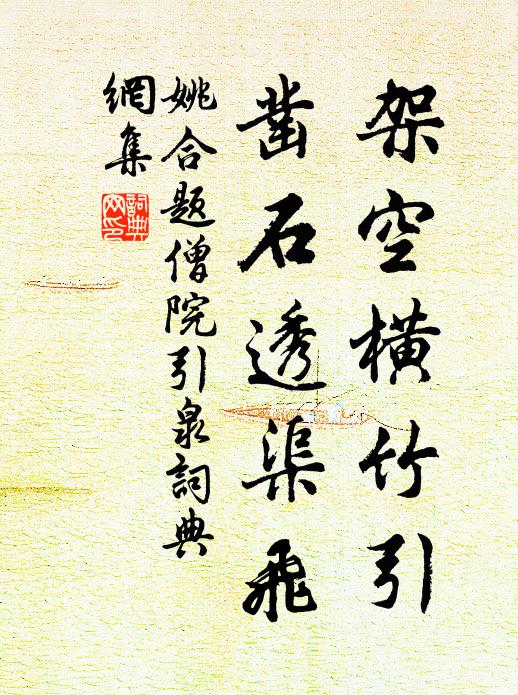 架空橫竹引
鑿石透渠飛
姚合題僧院引泉詞典
網集
詞典
网印